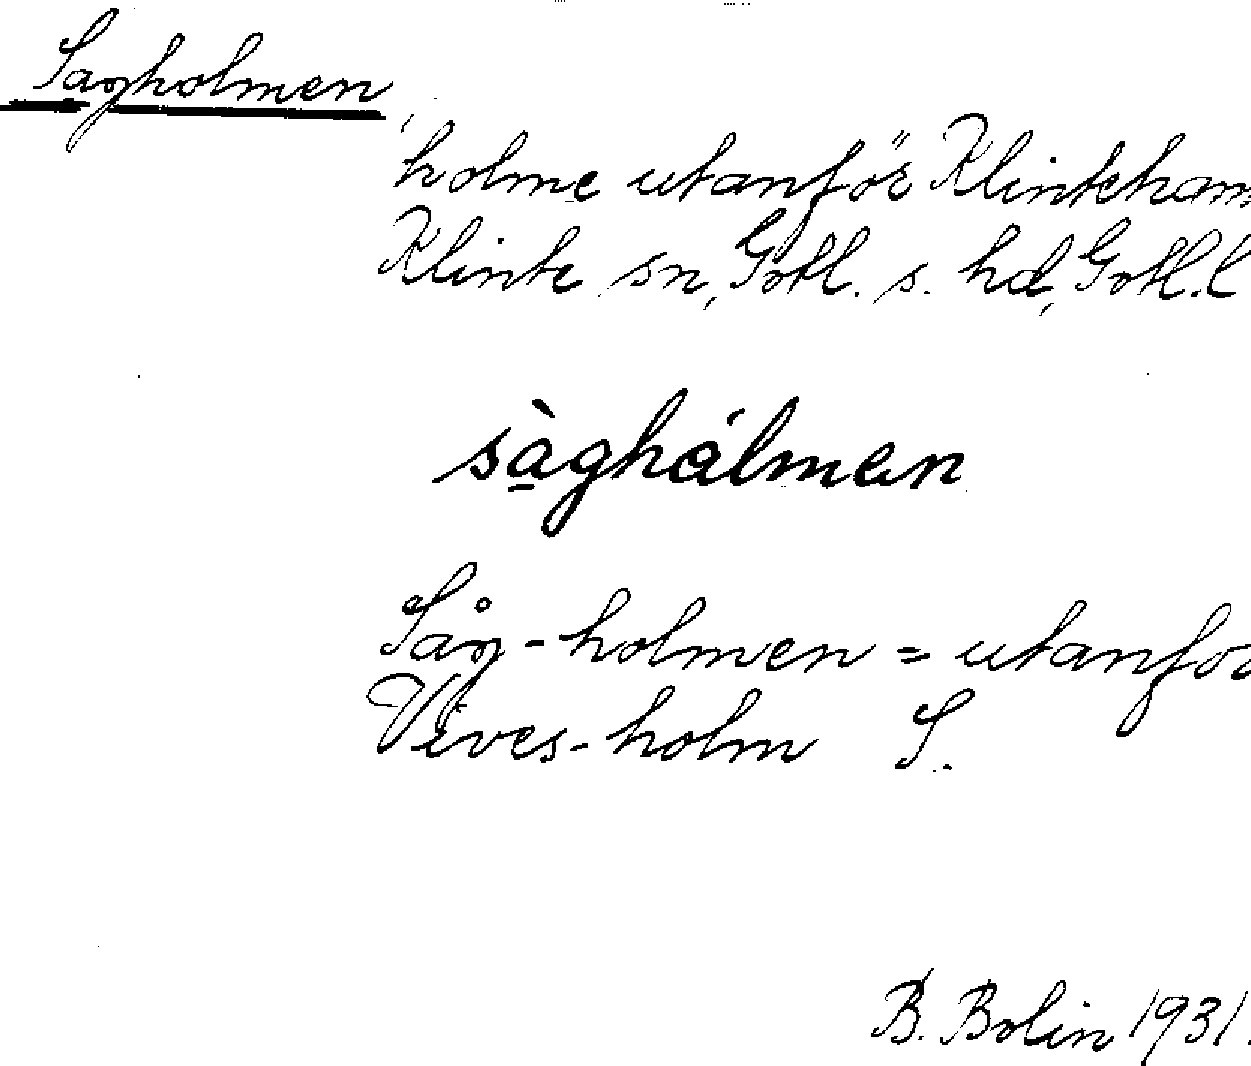 Sagholmen,
holme utanför Klintehamn
Klinte sn, Gotl. s. hd, Gotl. l
sàghálmen
Såg-holmen = utanför
Vives-holm S.
B. Bolin 1931.